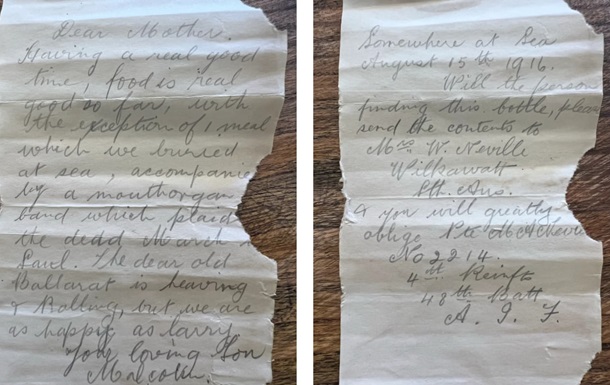 Dear Mother.
Having a real good
time, food is real
good so far, with
the exception of 1 meal
which we burried
at sea, accompanie
by a mouthorgan
band which plaid
the dedd March
Saul. The dear old
Ballarat is heaving
& Rolling, but we are
as happy as Larry.
Your loving Son
Malcolm.
Somewhere at Sea
August 15th 1916.
Will the person
finding this bottle, please
send the contents to
Mrs W. Neville
Wilkawatt
Sth. Aus.
& you will greatly
oblige Pte M. A.
No 2214.
4th Reinfts
48th Batt
A. I. F.